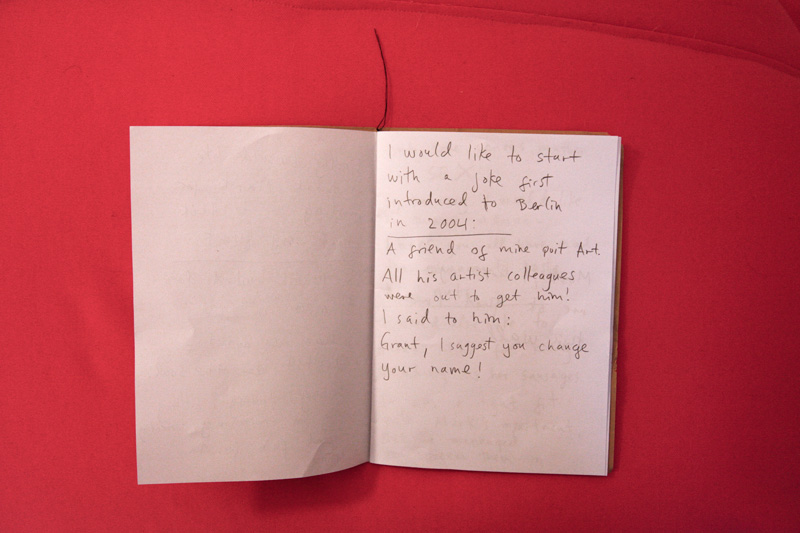 I would like to start
with a joke first
introduced to Berlin
in 2004:
A friend of mine quit Art.
All his artist colleagues
were out to get him!
I said to him:
Grant, I suggest you change
your name!